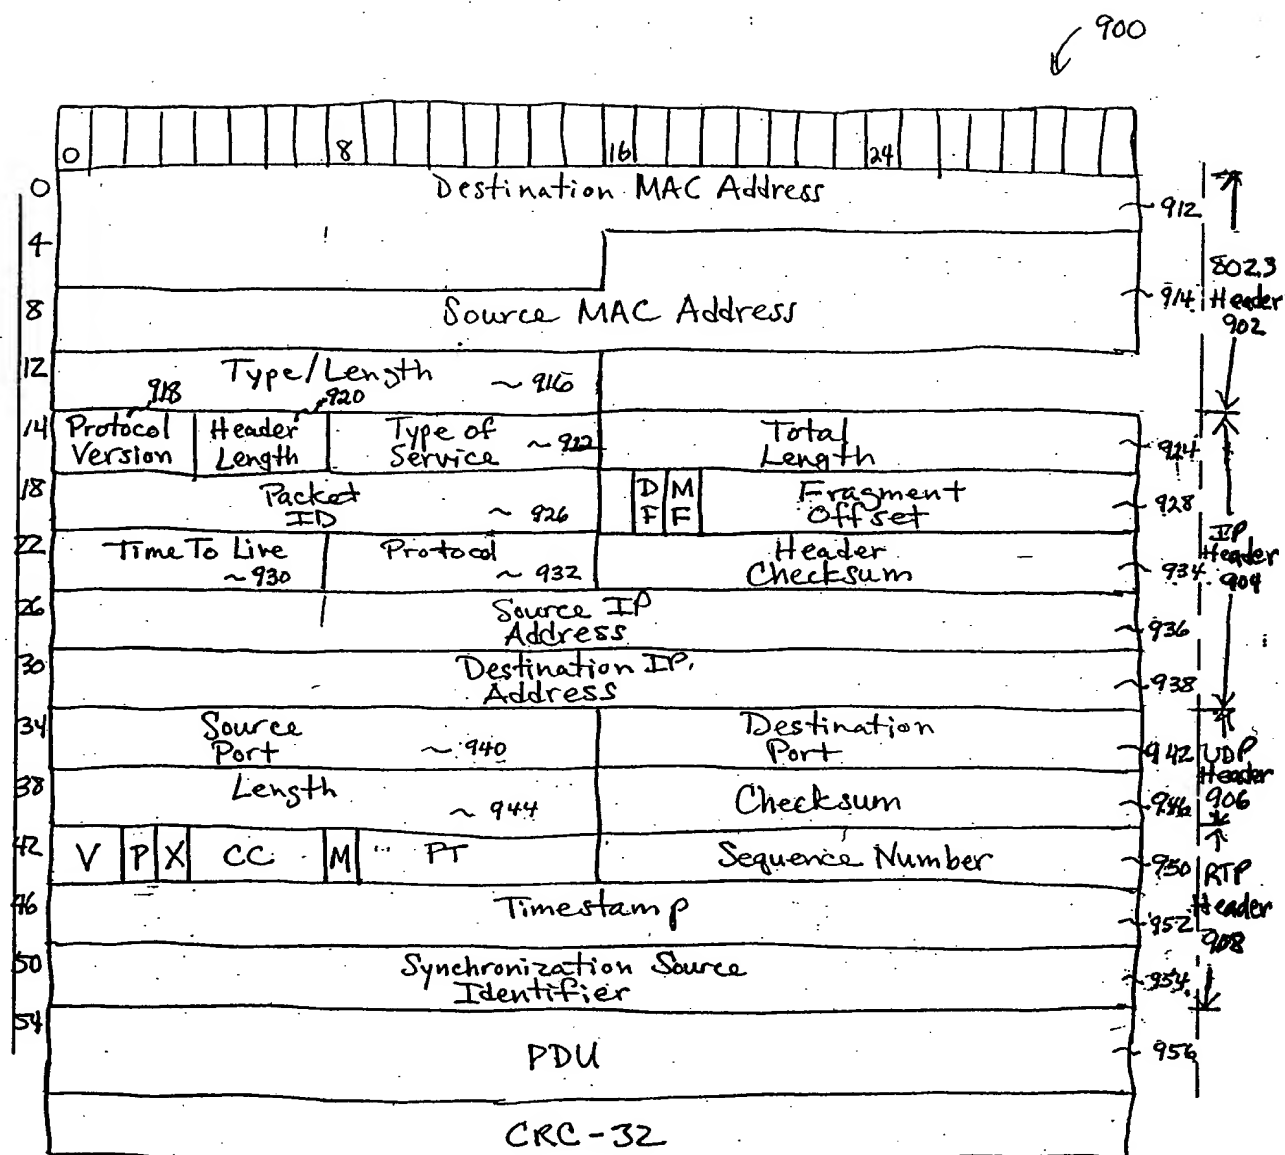 900
0 8 16 24
0 Destination MAC Address 912
4
802.3
8 Source MAC Address 914 Header
902
12 Type/Length 916
918 920
14 Protocol Version Header Length Type of Service 922 Total Length 924
18 Packet ID 926 DF MF Fragment Offset 928
22 Time To Live 930 Protocol 932 Header Checksum 934
IP Header 904
26 Source IP Address 936
30 Destination IP Address 938
34 Source Port 940 Destination Port 942
UDP Header 906
38 Length 944 Checksum 946
42 V P X CC M PT Sequence Number 950
RTP Header 908
46 Timestamp 952
50 Synchronization Source Identifier 954
54
PDU 956
CRC-32